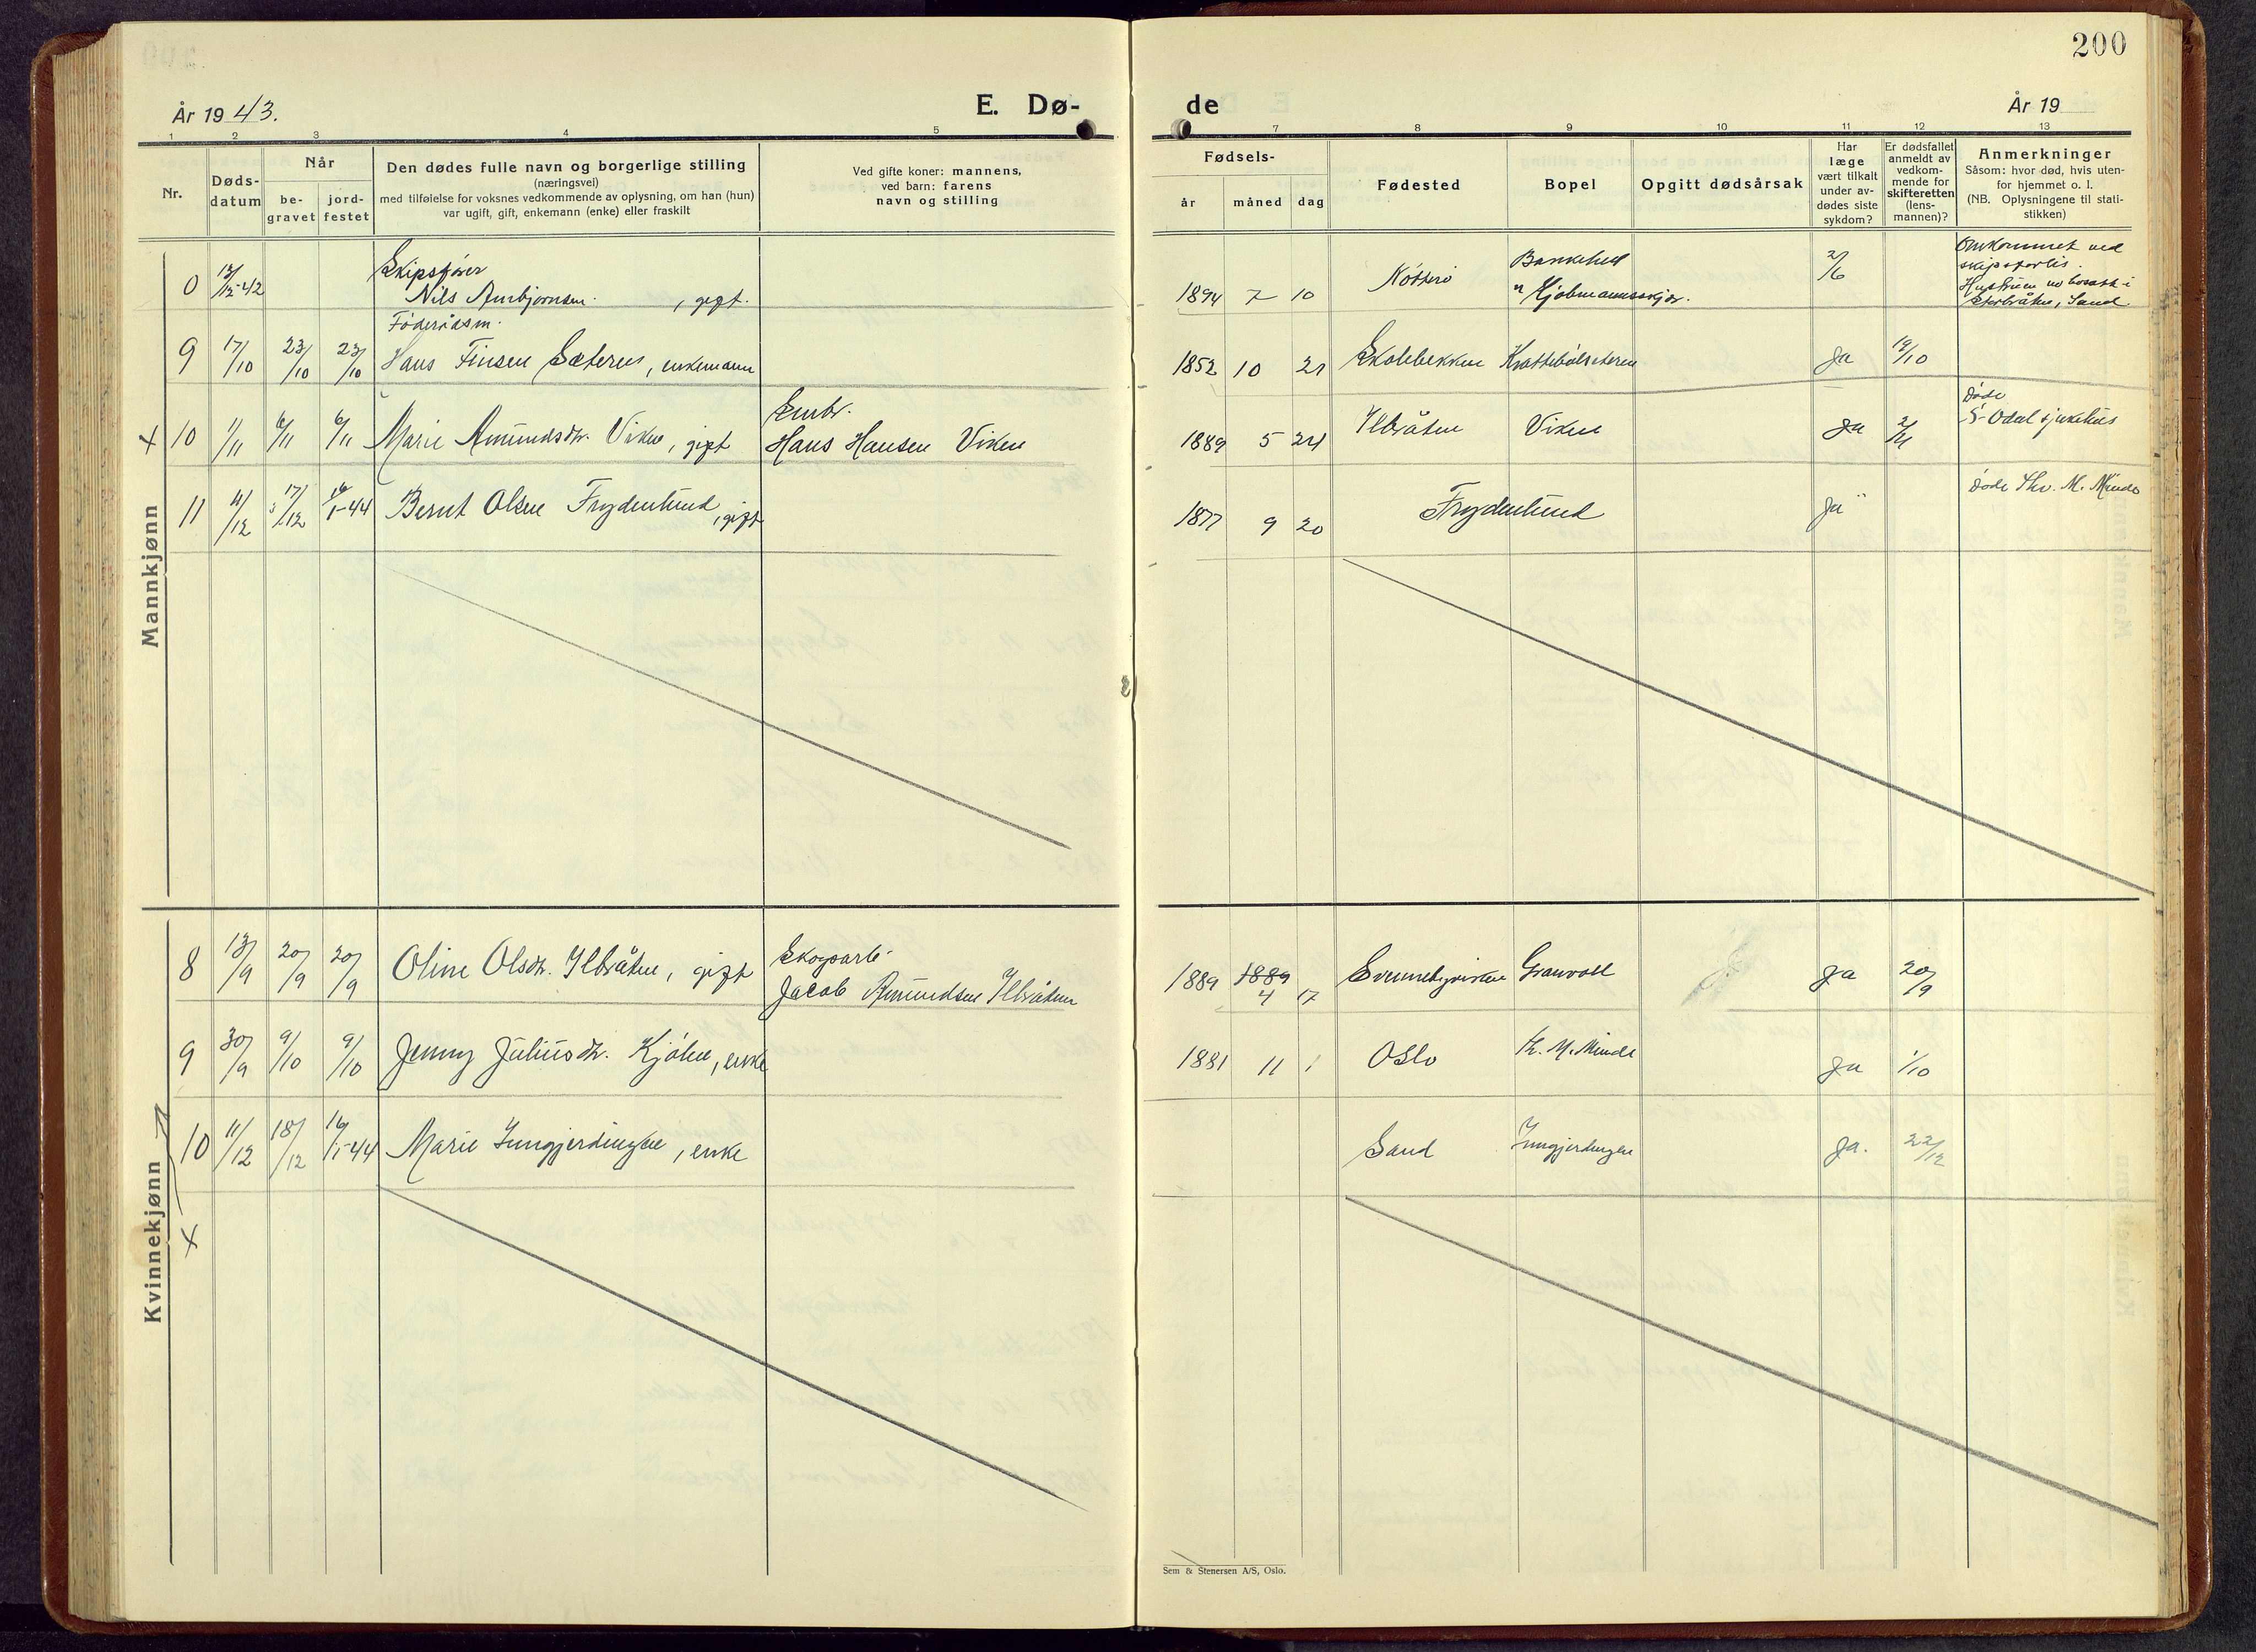 200
År 1943.
E. Dø-
de
År 19
1 2 3 4 5 7 8 9 10 11 12 13
Nr.
Døds-
datum
Når
be-
gravet
jord-
festet
Den dødes fulle navn og borgerlige stilling
(næringsvei)
med tilføielse for voksnes vedkommende av oplysning, om han (hun)
var ugift, gift, enkemann (enke) eller fraskilt
Ved gifte koner: mannens,
ved barn: farens
navn og stilling
Fødsels-
år måned dag
Fødested
Bopel
Opgitt dødsårsak
Har
læge
vært tilkalt
under av-
dødes siste
sykdom?
Er dødsfallet
anmeldt av
vedkom-
mende for
skifteretten
(lens-
mannen)?
Anmerkninger
Såsom: hvor død, hvis uten-
for hjemmet o. l.
(NB. Oplysningene til stati-
stikken)
Mannkjønn
Skipsfører
0 13/12-42 Nils Arnbjørnsen, gift. 1894 7 10 Nøtterø
2/6
Omkommet ved
skipsforlis.
Føderådsm.
9 17/10 23/10 23/10 Hans Finsen Sæteren, enkemann 1852 10 21 Skolebekken Krattebölseteren Ja 19/10
Embr.
x 10 1/11 6/11 6/11 Marie Amundsdtr. Viken, gift Hans Hansen Viken 1889 5 24 Ilbråten Viken Ja 2/11
Døde
S-Odal sjukehus
11 11/12 17/12 16/1-44 Bernt Olsen Frydenlund, gift 1877 9 20 Frydenlund Ja Døde Thv. M. Minde
Kvinnekjønn
Skogsarb.
8 13/9 20/9 20/9 Oline Olsdtr. Ilbråten, gift Jacob Amundsen Ilbråten 1889 1889 4 17 Granvoll Ja 20/9
9 30/9 9/10 9/10 Jenny Juliusdtr. Kjølen, enke 1881 11 1 Oslo Th. M. Minde Ja 1/10
10 11/12 18/12 16/1-44 Marie Inngjerdingen, enke Sand Inngjerdingen Ja. 22/12
x
Sem & Stenersen A/S, Oslo.